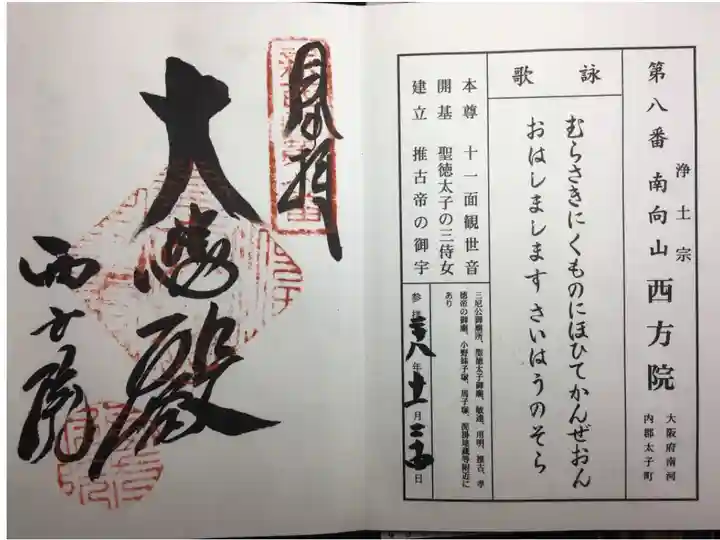 第八番 浄土宗 南向山 西方院
大阪府南河
内郡太子町
詠歌
むらさきにくものにほひてかんぜおん
おはしまします さいはうのそら
本尊 十一面観世音
開基 聖徳太子の三侍女
建立 推古帝の御宇
三尼公御廟所、聖徳太子御廟、敏達、用明、推古、孝
徳帝の御廟、小野妹子塚、馬子塚、泥掛地蔵等附近に
あり
参拝 二八年十一月二十四日
奉拝
大悲殿
西方院